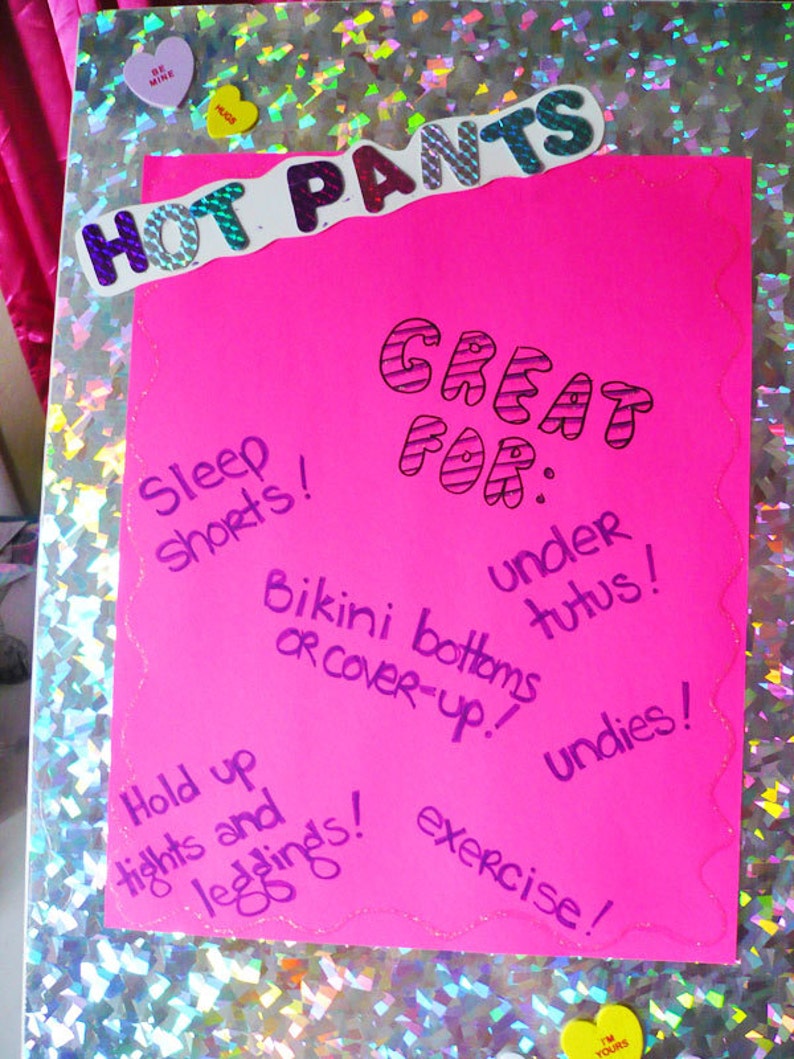 BE
MINE
HUGS
HOT PANTS
GREAT
FOR:
Sleep
shorts!
under
tutus!
Bikini bottoms
OR COVER-up!
undies!
Hold up
tights and
leggings!
exercise!
I'M
YOURS